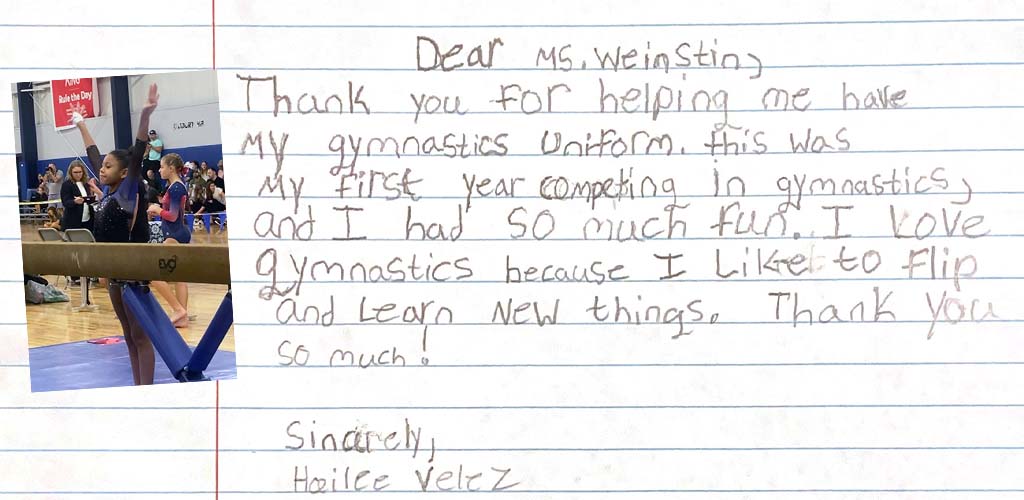 Dear Ms. Weinstin,
Thank you for helping me have
My gymnastics Uniform. this was
My first year competing in gymnastics,
and I had so much fun. I Love
gymnastics because I Like to Flip
and Learn New things. Thank you
so much!
Sincerely,
Hailee Velez
Rule the Day
evo